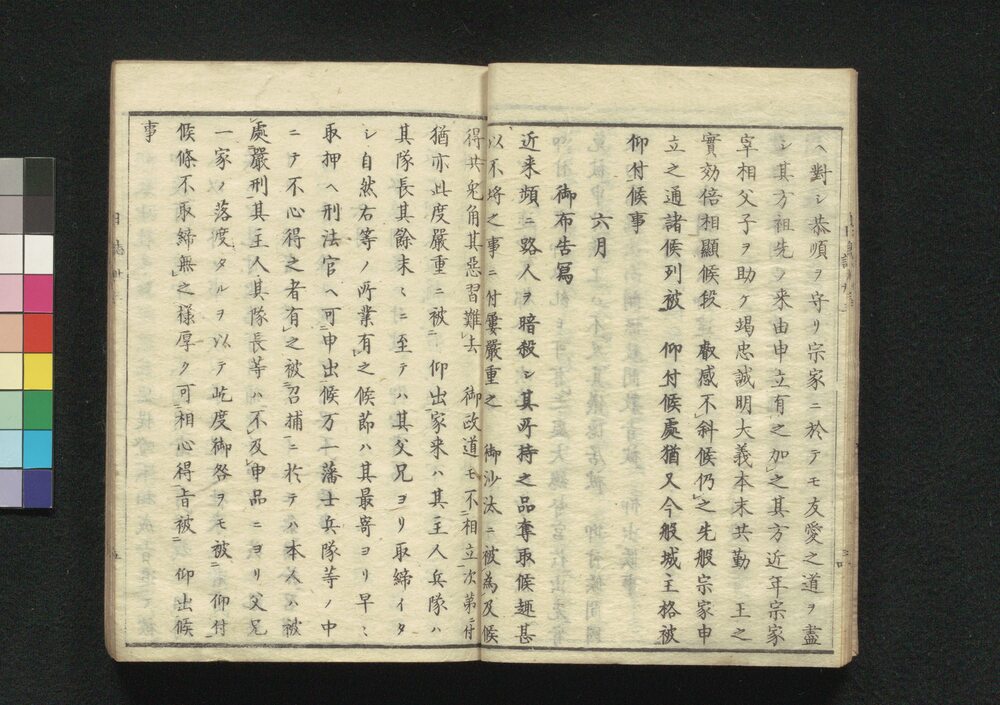 ヘ對シ恭順ヲ守リ宗家ニ於テモ友愛之道ヲ盡
シ其方祖先ノ来由申立有之加之其方近年宗家
宰相父子ヲ助ケ竭忠誠明大義本末共勤 王之
實効倍相顯候段 叡感不斜候仍之先般宗家申
立之通諸侯列被 仰付候處猶又今般城主格被
仰付候事
六月
御布告寫
近来頻ニ路人ヲ暗殺シ其所持之品奪取候趣甚
以不埒之事ニ付屢嚴重之 御沙汰ニ被為及候
得共兔角其惡習難去 御改道モ不相立次第ニ付
猶亦此度嚴重ニ被 仰出家来ハ其主人兵隊ハ
其隊長其餘末々ニ至テハ其父兄ヨリ取締イタ
シ自然右等ノ所業有之候節ハ其最寄ヨリ早々
取押ヘ刑法官ヘ可申出候万一藩士兵隊等ノ中
ニテ不心得之者有之被召捕ニ於テハ本人ハ被
處嚴刑其主人其隊長等ハ不及申品ニヨリ父兄
一家ノ落度タルヲ以テ屹度御咎ヲモ被 仰付
候條不取締無之様厚ク可相心得旨被 仰出候
事
日誌
五